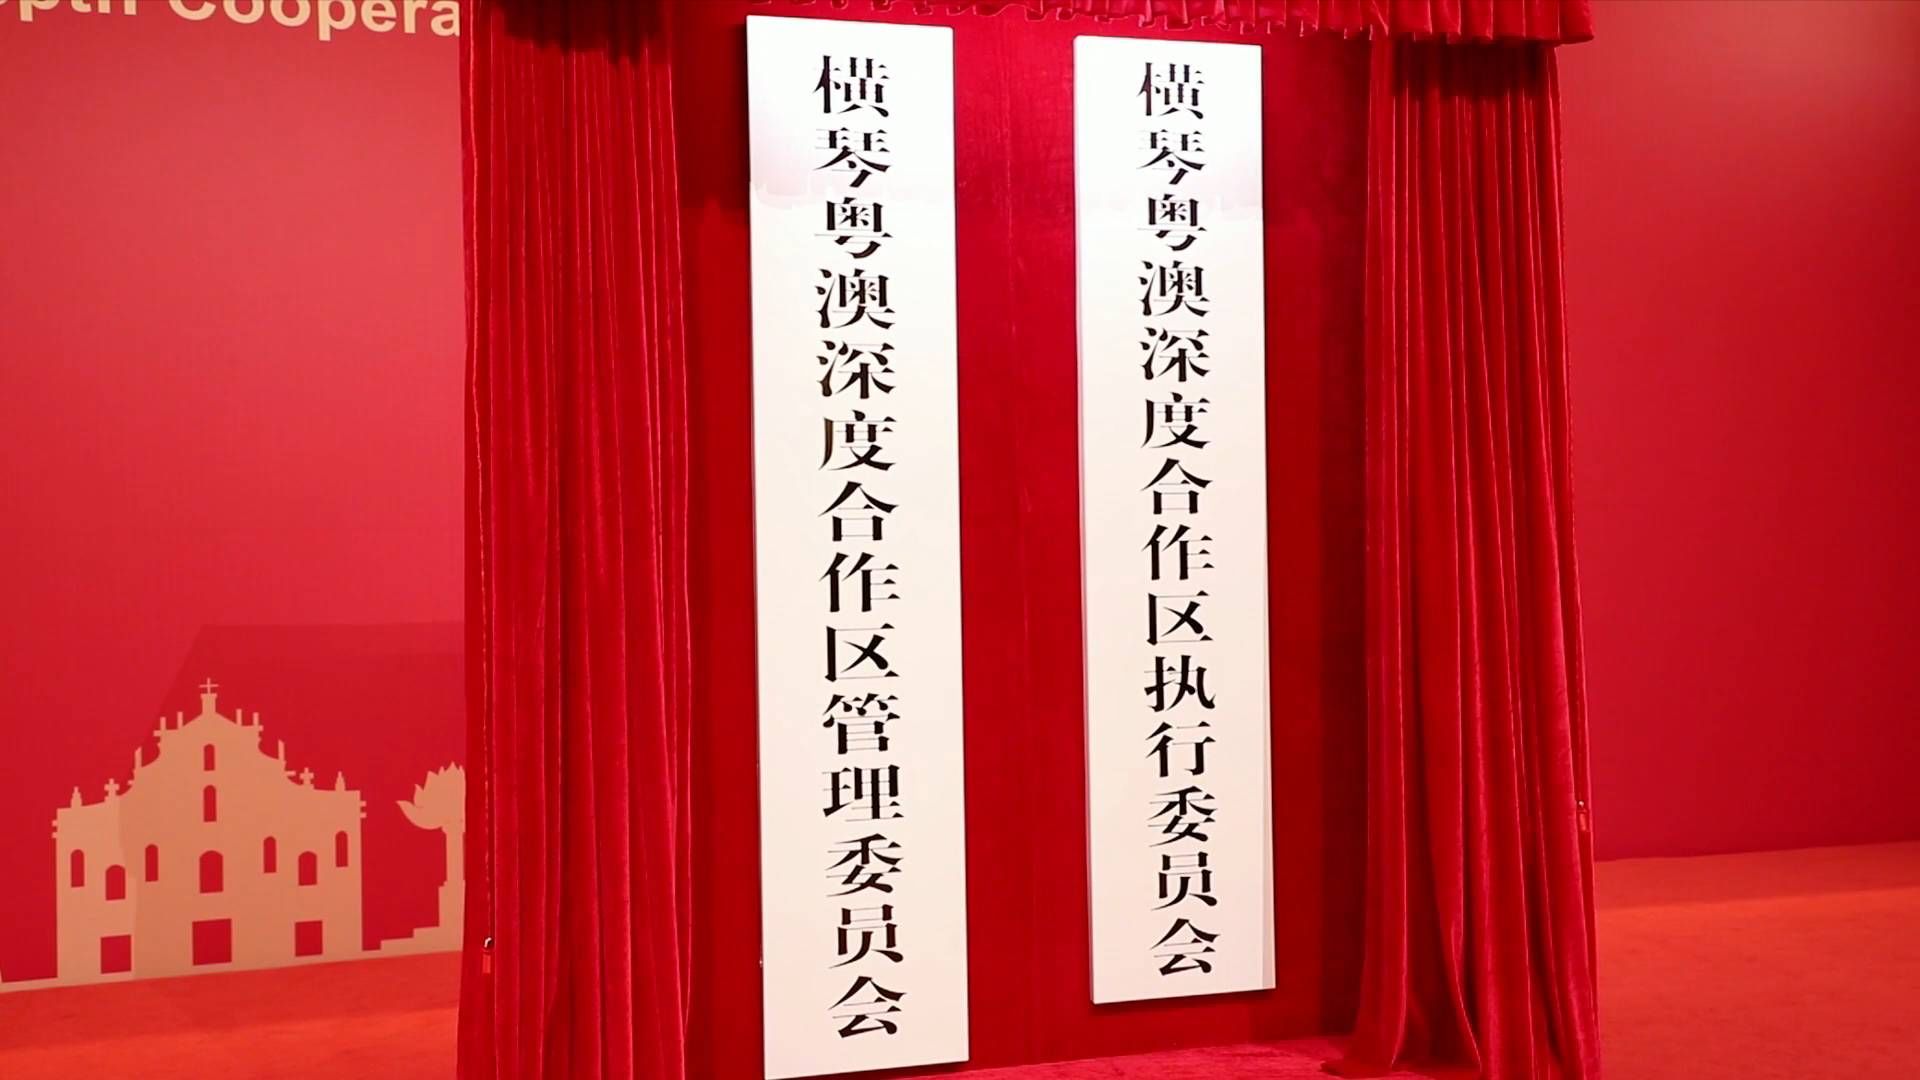 epth Coopera
横琴粤澳深度合作区管理委员会
横琴粤澳深度合作区执行委员会